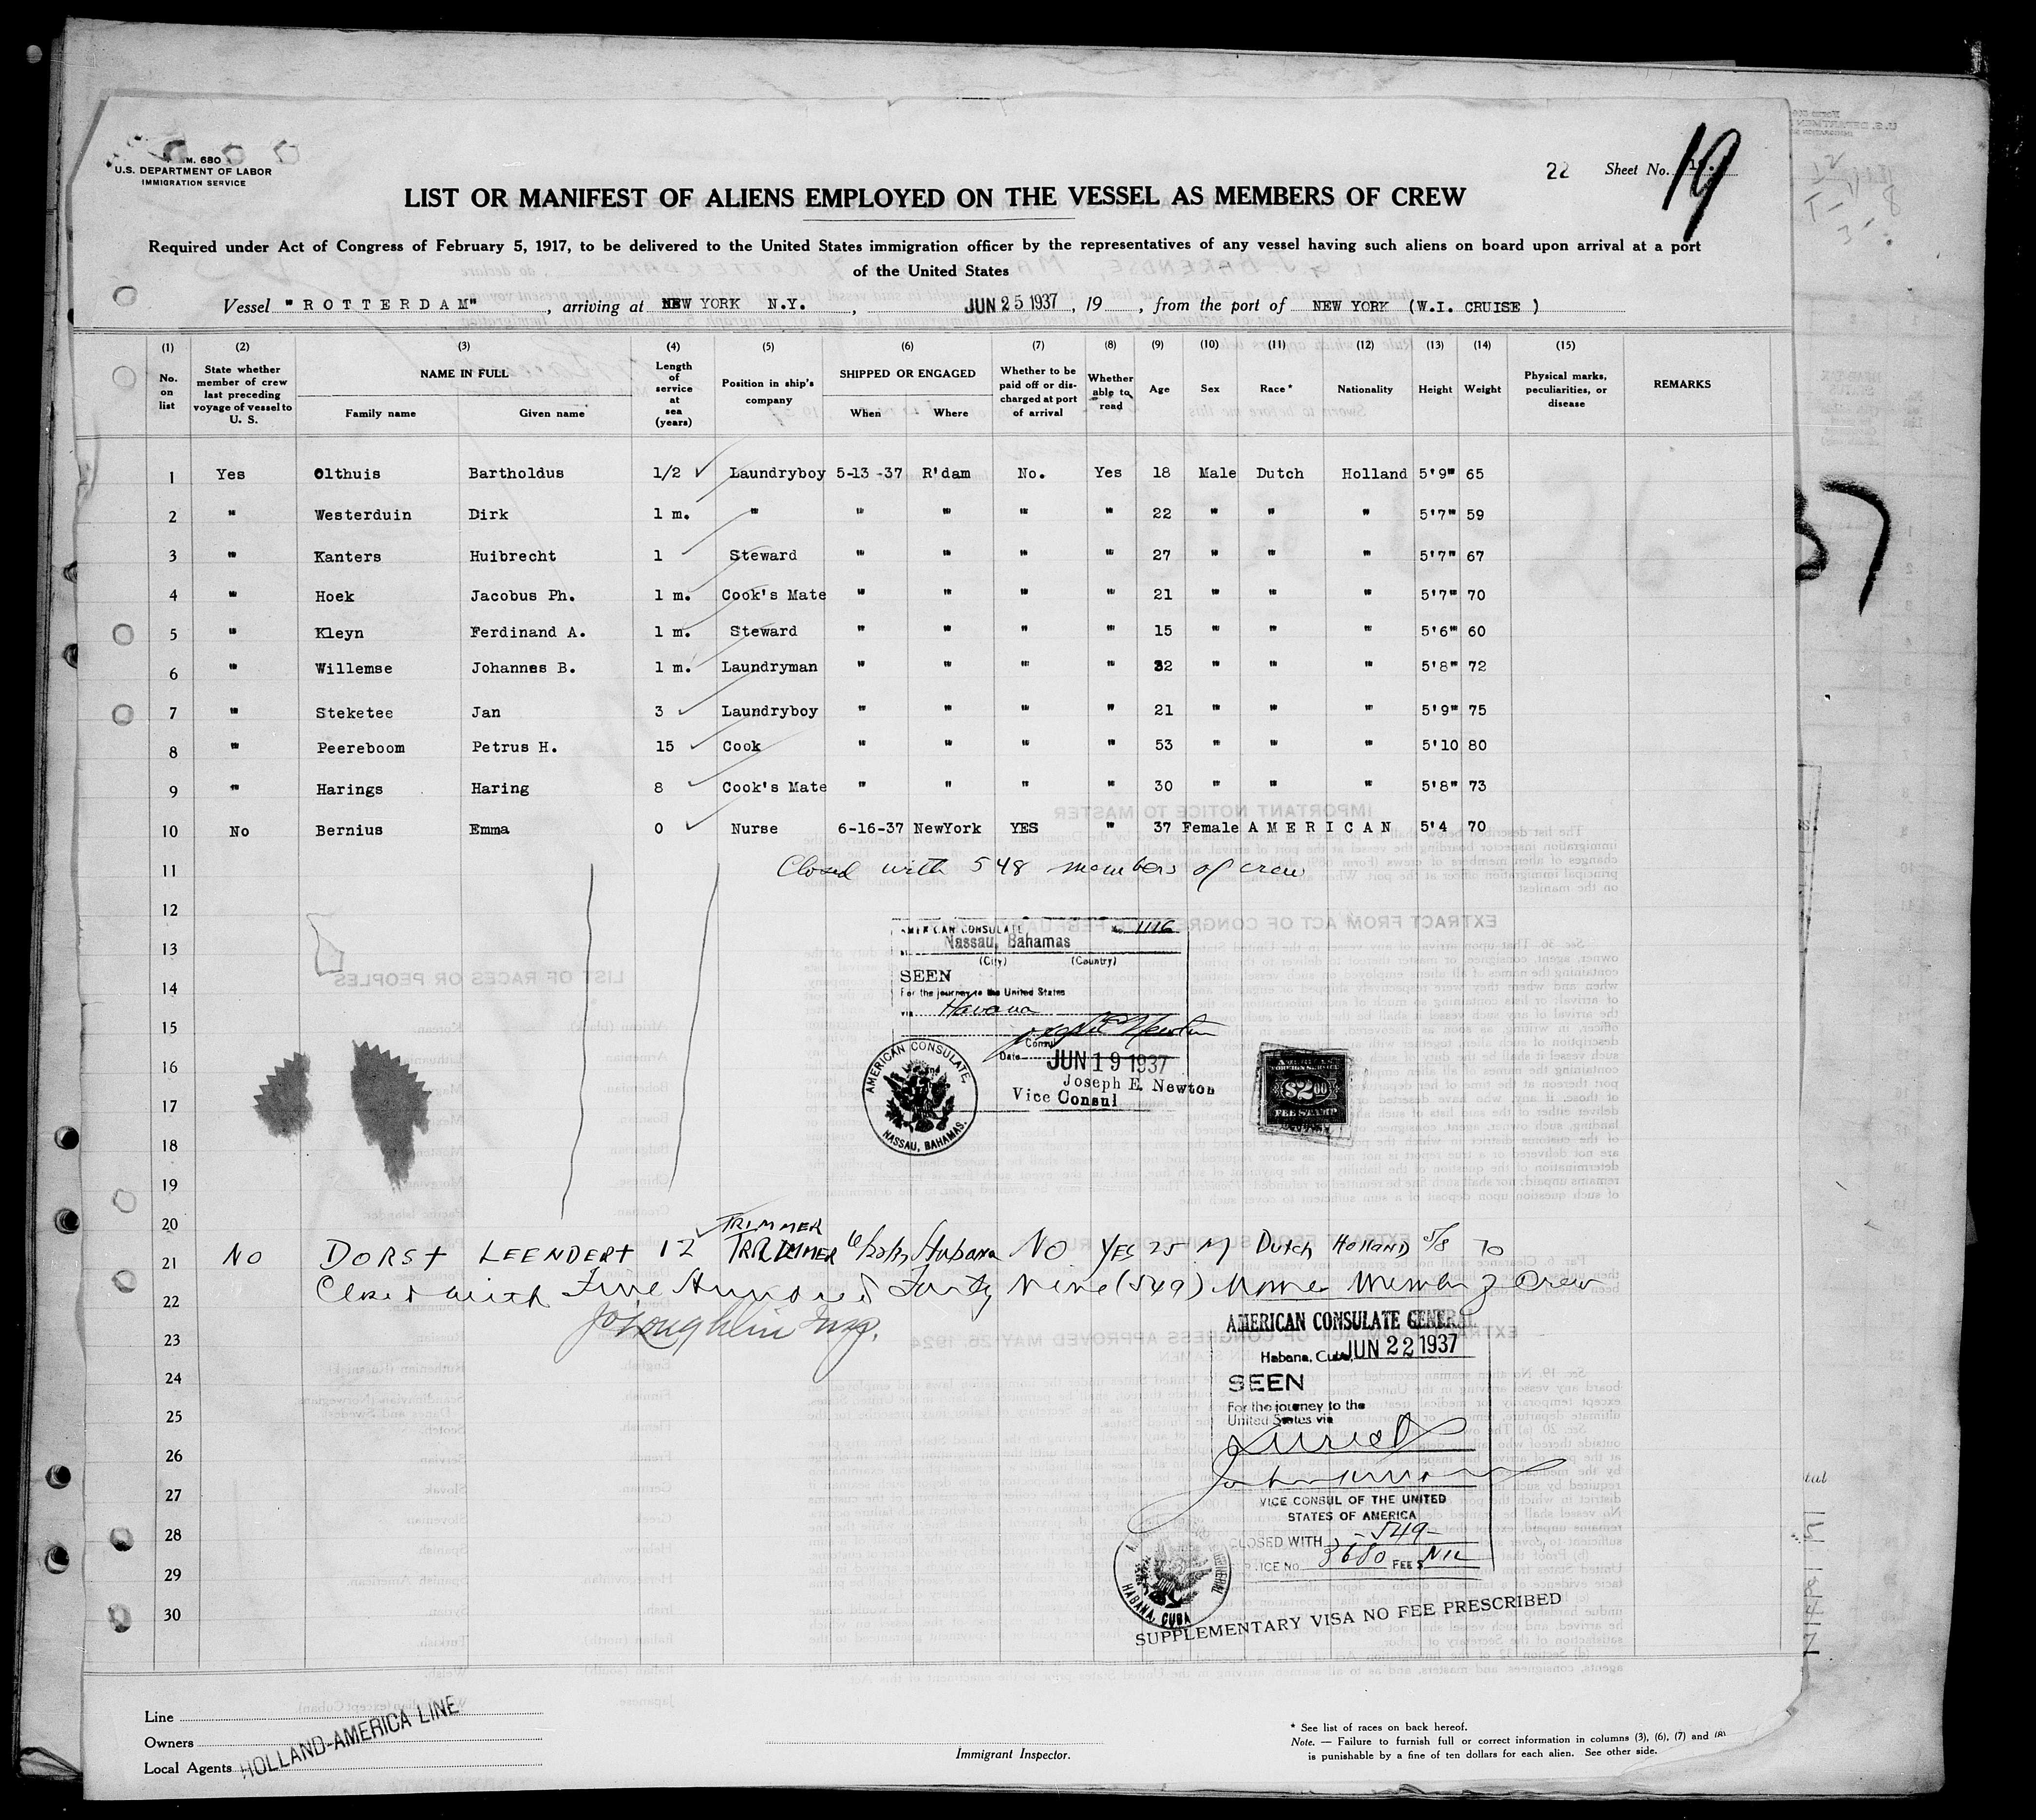 FORM. 680
U.S. DEPARTMENT OF LABOR
IMMIGRATION SERVICE
22 Sheet No. 19
LIST OR MANIFEST OF ALIENS EMPLOYED ON THE VESSEL AS MEMBERS OF CREW
Required under Act of Congress of February 5, 1917, to be delivered to the United States immigration officer by the representatives of any vessel having such aliens on board upon arrival at a port
of the United States
Vessel "ROTTERDAM", arriving at NEW YORK N.Y., JUN 25 1937, 19 , from the port of NEW YORK (W.I. CRUISE )
(1) (2) (3) (4) (5) (6) (7) (8) (9) (10) (11) (12) (13) (14) (15)
No. on list State whether member of crew last preceding voyage of vessel to U. S. NAME IN FULL Family name Given name Length of service at sea (years) Position in ship's company SHIPPED OR ENGAGED When Where Whether to be paid off or discharged at port of arrival Whether able to read Age Sex Race* Nationality Height Weight Physical marks, peculiarities, or disease REMARKS
1 Yes Olthuis Bartholdus 1/2 Laundryboy 5-13-37 R'dam No. Yes 18 Male Dutch Holland 5'9" 65
2 " Westerduin Dirk 1 m. " " " " " 22 " " " 5'7" 59
3 " Kanters Huibrecht 1 Steward " " " " 27 " " " 5'7" 67
4 " Hoek Jacobus Ph. 1 m. Cook's Mate " " " " 21 " " " 5'7" 70
5 " Kleyn Ferdinand A. 1 m. Steward " " " " 15 " " " 5'6" 60
6 " Willemse Johannes B. 1 m. Laundryman " " " " 32 " " " 5'8" 72
7 " Steketee Jan 3 Laundryboy " " " " 21 " " " 5'9" 75
8 " Peereboom Petrus H. 15 Cook " " " " 53 " " " 5'10 80
9 " Harings Haring 8 Cook's Mate " " " " 30 " " " 5'8" 73
10 No Bernius Emma 0 Nurse 6-16-37 NewYork YES " 37 Female AMERICAN 5'4 70
11 Closed with 548 members of crew
12
AMERICAN CONSULATE No. 1116
13 Nassau, Bahamas
(City) (Country)
SEEN
14 For the journey to the United States
via Havana
15
Consul
16 Date JUN 19 1937
Joseph E. Newton
17 Vice Consul
AMERICAN CONSULATE, NASSAU, BAHAMAS.
AMERICAN FOREIGN SERVICE $2.00 FEE STAMP
18
19
20 TRIMMER
21 NO DORST LEENDERT 12 TRIMMER Habana NO YES 25 M Dutch Holland 5/8 70
22 Closed with Five Hundred Forty Nine (549) Members of Crew
23 Insp.
AMERICAN CONSULATE GENERAL
Habana, Cuba, JUN 22 1937
24 SEEN
25 For the journey to the
United States via
26
27
VICE CONSUL OF THE UNITED
STATES OF AMERICA
28 CLOSED WITH -549-
29 SERVICE No. 3680 FEE $ NIL
HABANA, CUBA
30 SUPPLEMENTARY VISA NO FEE PRESCRIBED
Line
Owners
Local Agents
HOLLAND-AMERICA LINE
Immigrant Inspector.
* See list of races on back hereof.
Note. — Failure to furnish full or correct information in columns (3), (6), (7) and (8)
is punishable by a fine of ten dollars for each alien. See other side.
37